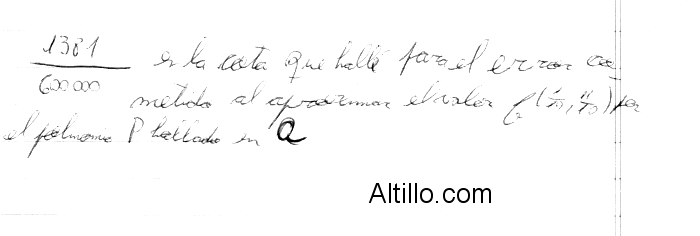 1381
600 000 es la cota que hallé para el error co-
metido al aproximar el valor f(1/10, 11/10) por
el polinomio P hallado en a
Altillo.com